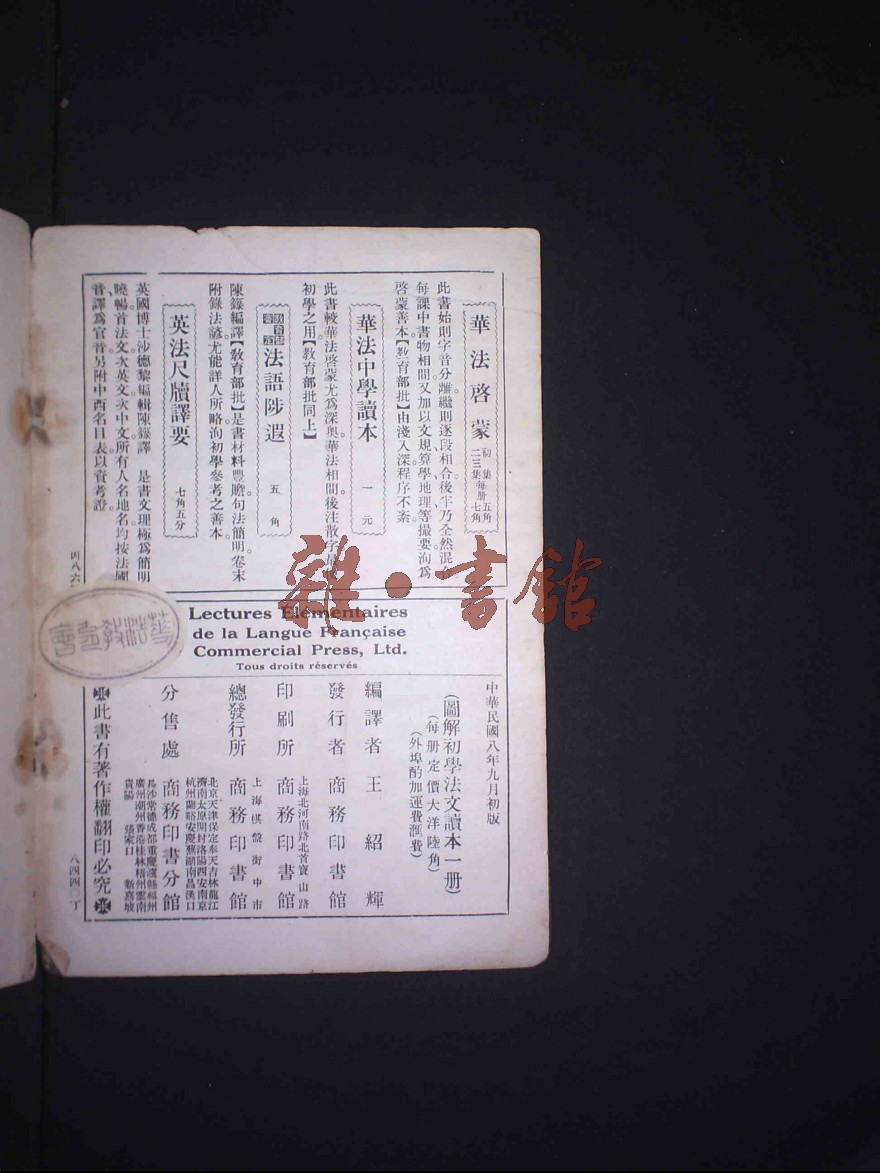 華法啓蒙 初集每册五角 二三集七角
此書始則字音分離繼則逐段相合後半乃全然混
每課中書物相間又加以文規算學地理等撮要洵爲
啓蒙善本【教育部批】由淺入深程序不紊
華法中學讀本 一元
此書較華法啓蒙尤爲深奥華法相間後注散字
初學之用【教育部批同上】
法語陟遐 五角
陳籙編譯【教育部批】是書材料豐贍句法簡明卷末
附錄法諺尤能詳人所略洵初學參考之善本
英法尺牘譯要 七角五分
英國博士沙德黎編輯陳籙譯 是書文理極爲簡明
曉暢首法文次英文次中文所有人名地名均按法國
音譯爲官音另附中西名目表以資考證
丙八六
雜·書館
Lectures Elémentaires
de la Langue Française
Commercial Press, Ltd.
Tous droits réservés
中華民國八年九月初版
(圖解初學法文讀本一册)
(每册定價大洋陸角)
(外埠酌加運費滙費)
編譯者 王紹輝
發行者 商務印書館
上海北河南路北首寶山路
印刷所 商務印書館
上海棋盤街中市
總發行所 商務印書館
北京天津保定奉天吉林龍江
濟南太原開封洛陽西安南京
杭州蘭谿安慶蕪湖南昌漢口
分售處 商務印書分館
長沙常德成都重慶瀘縣福州
廣州潮州香港桂林梧州雲南
貴陽 張家口 新嘉坡
此書有著作權翻印必究
八四四〇丁